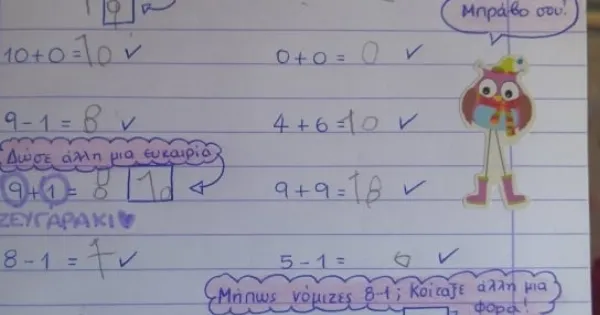 9
Μπράβο σου!
10+0=10 ✓
0+0= 0 ✓
9-1= 8 ✓
4+6=10 ✓
Δώσε άλλη μια ευκαιρία
9+1= 8 10
9+9=18 ✓
ΖΕΥΓΑΡΑΚΙ
8-1=7 ✓
5-1= ✓
Μήπως νόμιζες 8-1; Κοίταξε άλλη μια
φορά!